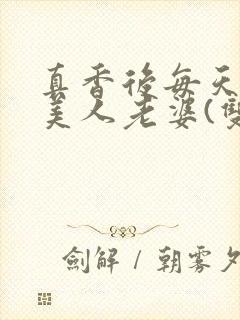 真香後每天
美人老婆(雙
劍解 / 朝雾夕